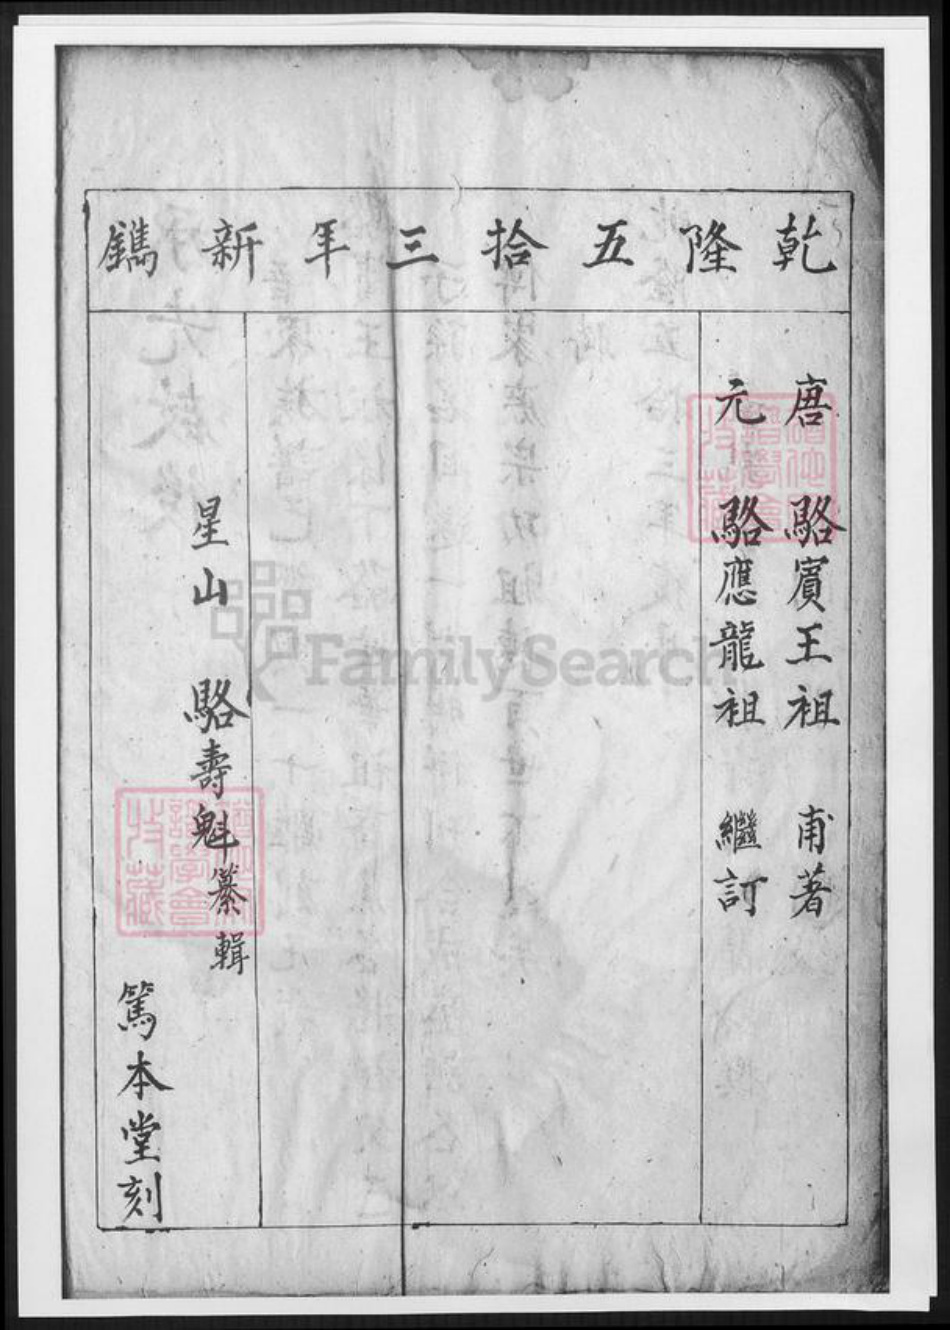 乾隆五拾三年新鐫
唐 駱賓王祖 甫著
元 駱應龍祖 繼訂
星山 駱壽魁纂輯
篤本堂刻
FamilySearch